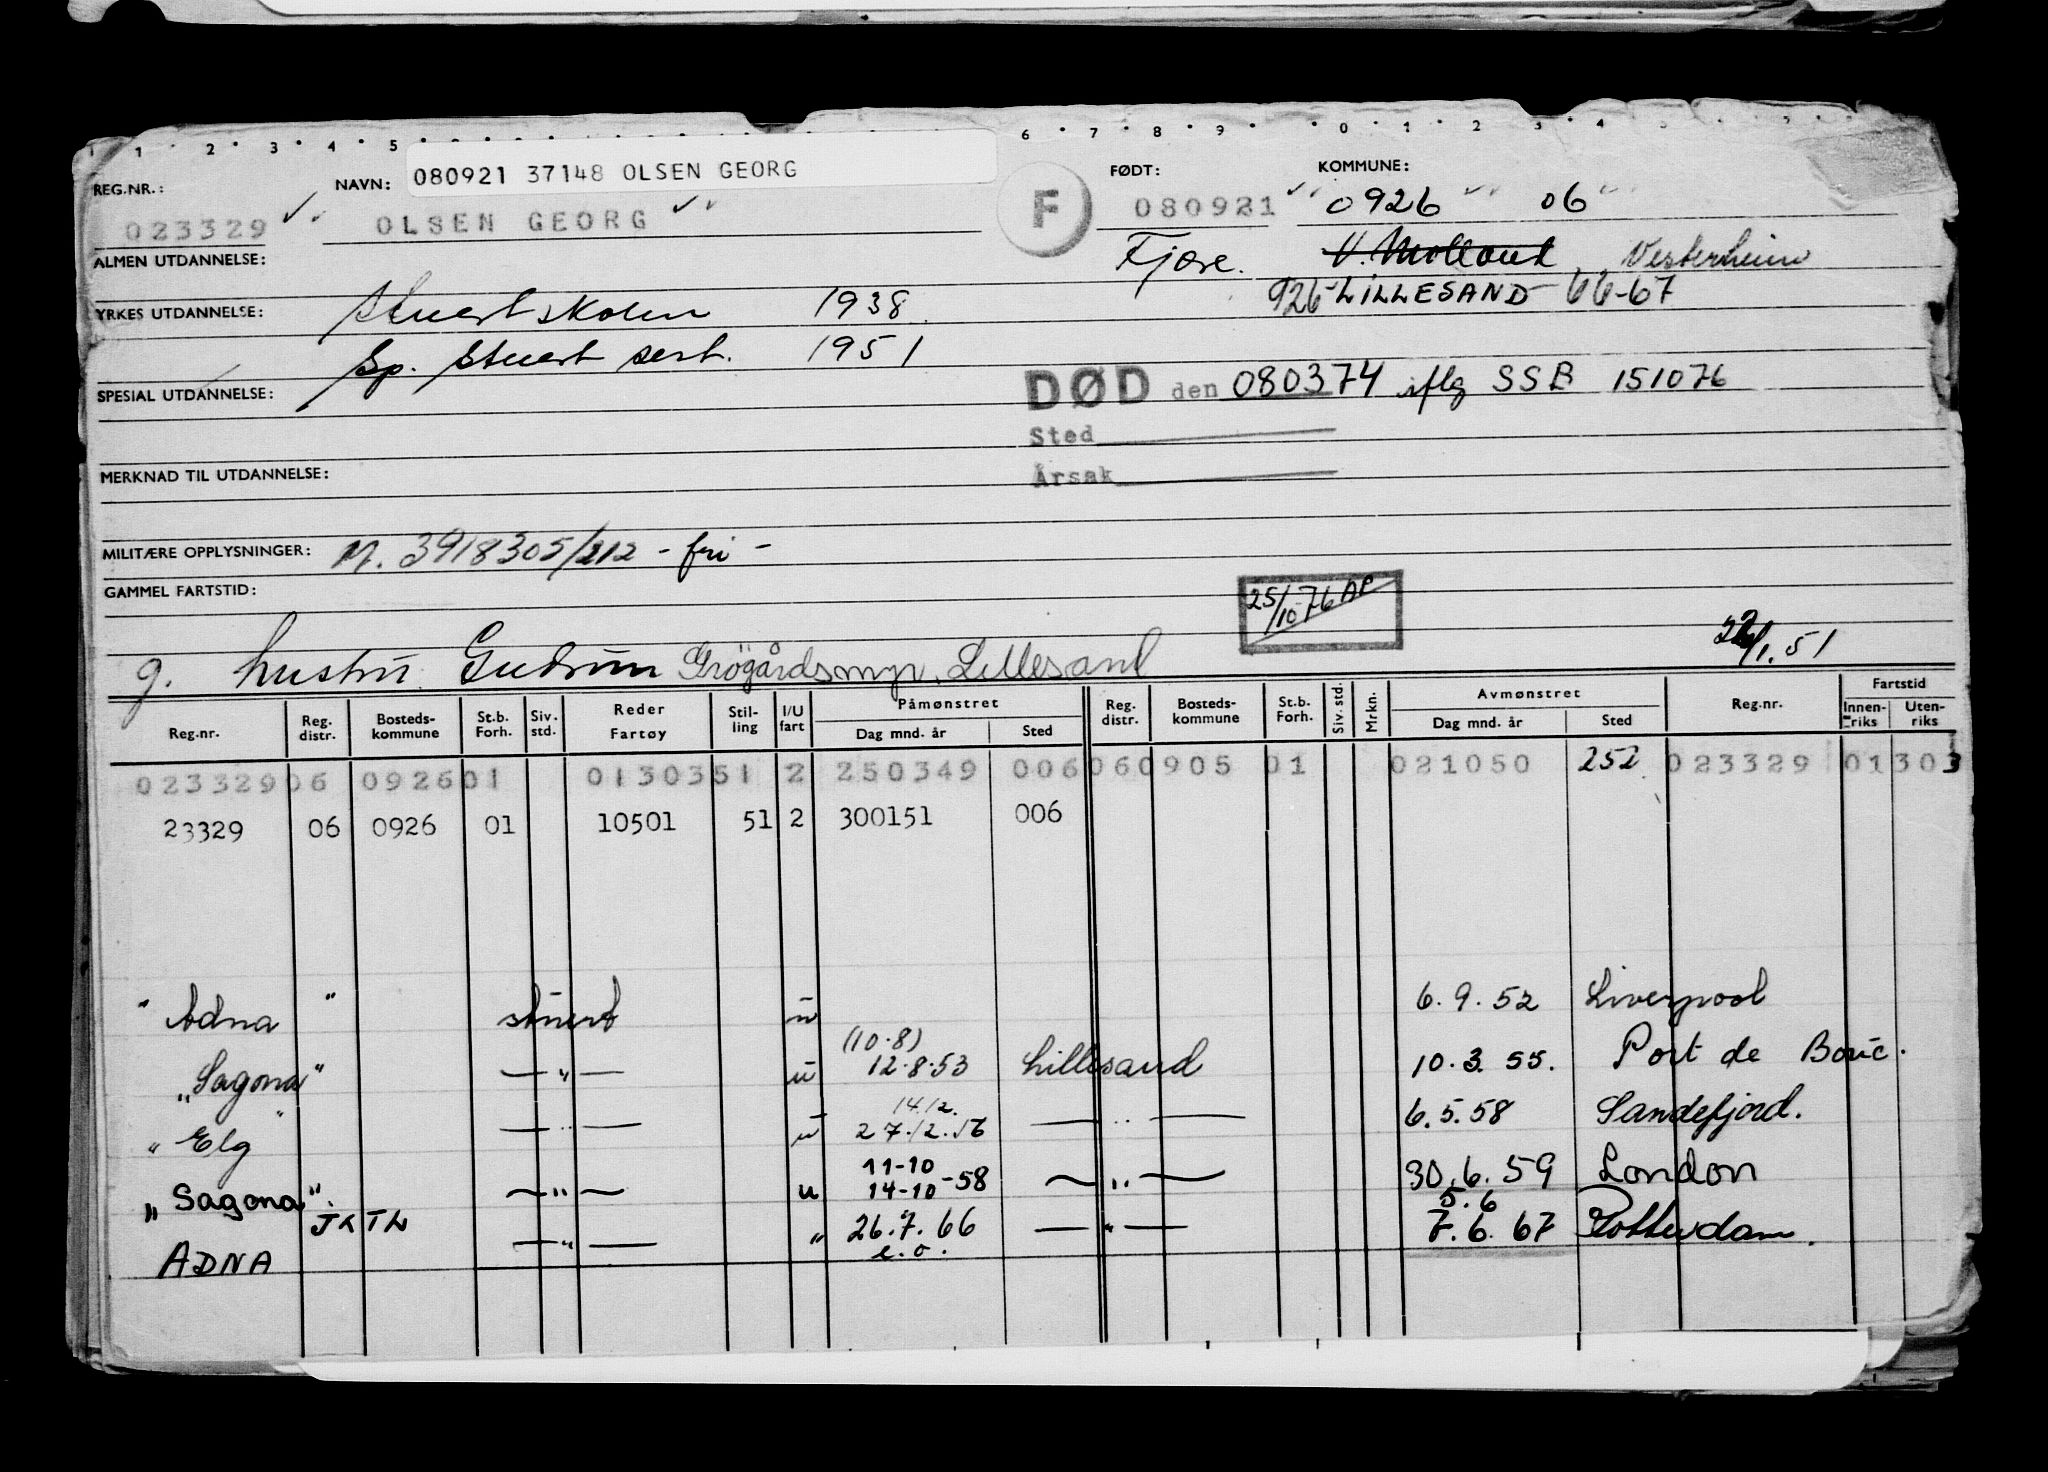 1 1 2 3 4 5 6 7 8 9 0 1 2 3 4
REG.NR.: NAVN: 080921 37148 OLSEN GEORG FØDT: KOMMUNE:
023329 OLSEN GEORG F 080921 0926 06
ALMEN UTDANNELSE: Fjære. V. Molland Vesterheim
926-LILLESAND 66-67
YRKES UTDANNELSE: Stuertskolen 1938.
Sp. Stuert sert. 1951
SPESIAL UTDANNELSE: DØD den 080374 iflg SSB 151076
Sted
MERKNAD TIL UTDANNELSE: Årsak
MILITÆRE OPPLYSNINGER: M. 3918305/212 - fri -
GAMMEL FARTSTID: 25/10-76 AP
g. hustru Gudrun Grögårdsmyr, Lillesand /1.51
Reg.nr. Reg. distr. Bosteds-kommune St.b. Forh. Siv. std. Reder Fartøy Stil-ling I/U fart Påmønstret Dag mnd. år Sted Reg. distr. Bosteds-kommune St.b. Forh. Siv. std. Mrkn. Avmønstret Dag mnd. år Sted Reg.nr. Fartstid Innen-riks Uten-riks
023329 06 0926 01 01303 51 2 250349 006 06 0905 01 021050 252 023329 01 303
23329 06 0926 01 10501 51 2 300151 006
" Adna " stuert u 6.9.52 Liverpool
(10.8)
"Sagona" — " — u 12.8.53 Lillesand 10.3.55. Port de Bouc.
14.12.
" Elg " — " — u 27.12.56 — " — 6.5.58 Sandefjord.
11-10
"Sagona" — " — u 14-10-58 — " — 30.6.59 London
5.6
JKTL — " — " 26.7.66 — " — 7.6.67 Rotterdam.
ADNA e.o.